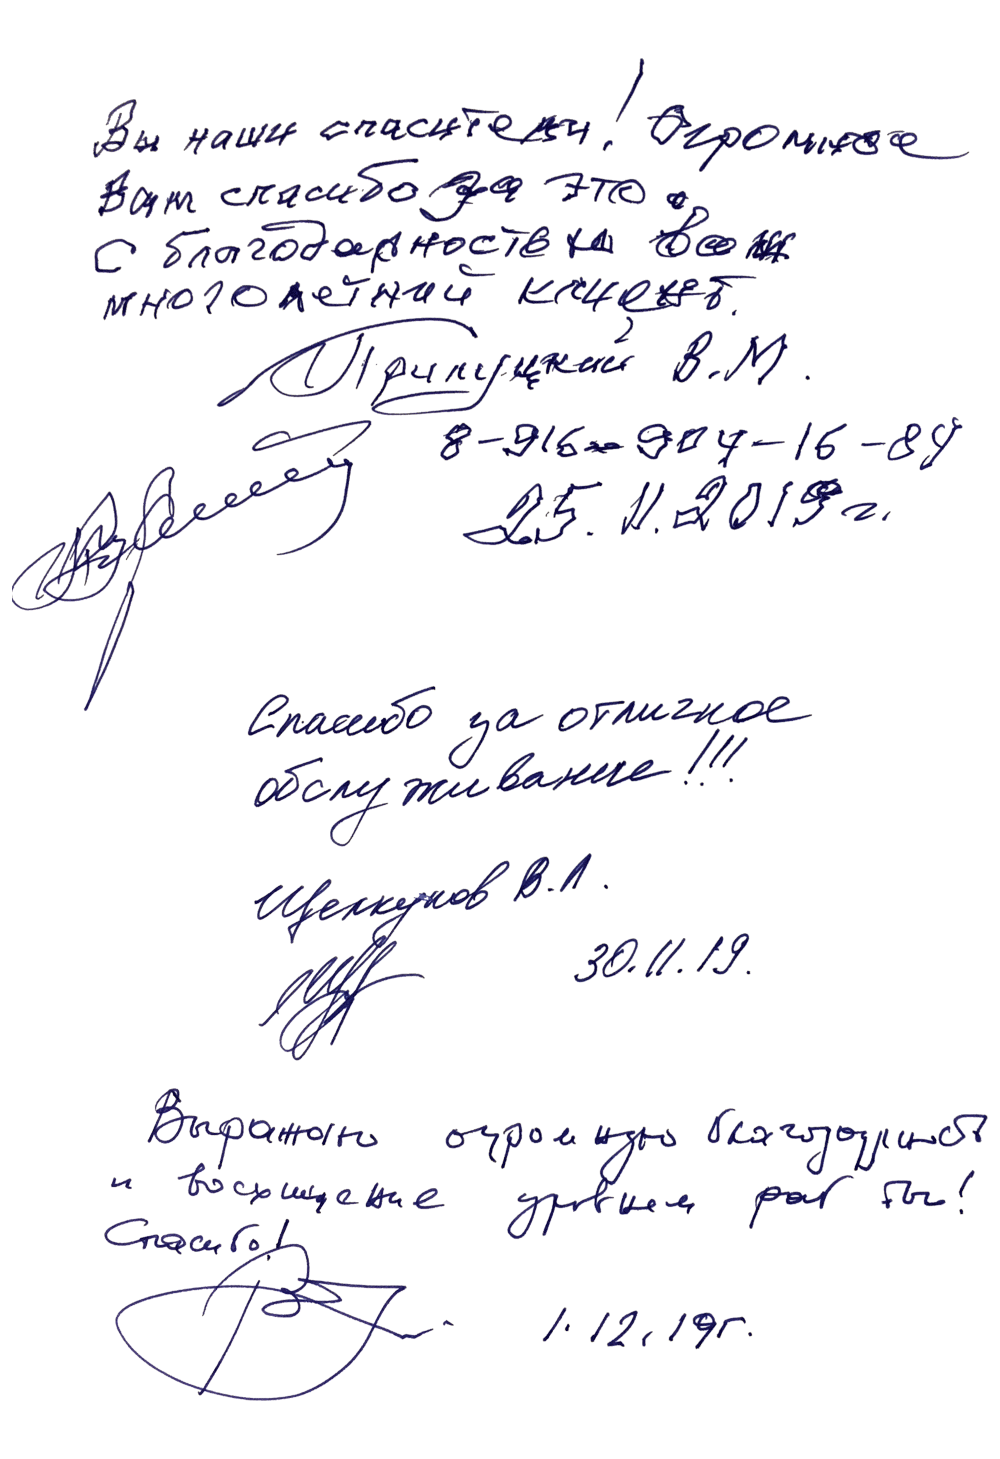 Вы наши спасители! Огромное
Вам спасибо за это.
С благодарностью ваш
многолетний клиент.
Прилуцкий В.М.
8-916-904-16-84
25.11.2019г.
Спасибо за отличное
обслуживание!!!
Щелкунов В.Л.
30.11.19.
Выражаю огромную благодарность
и восхищение уровнем работы!
Спасибо!
1.12.19г.